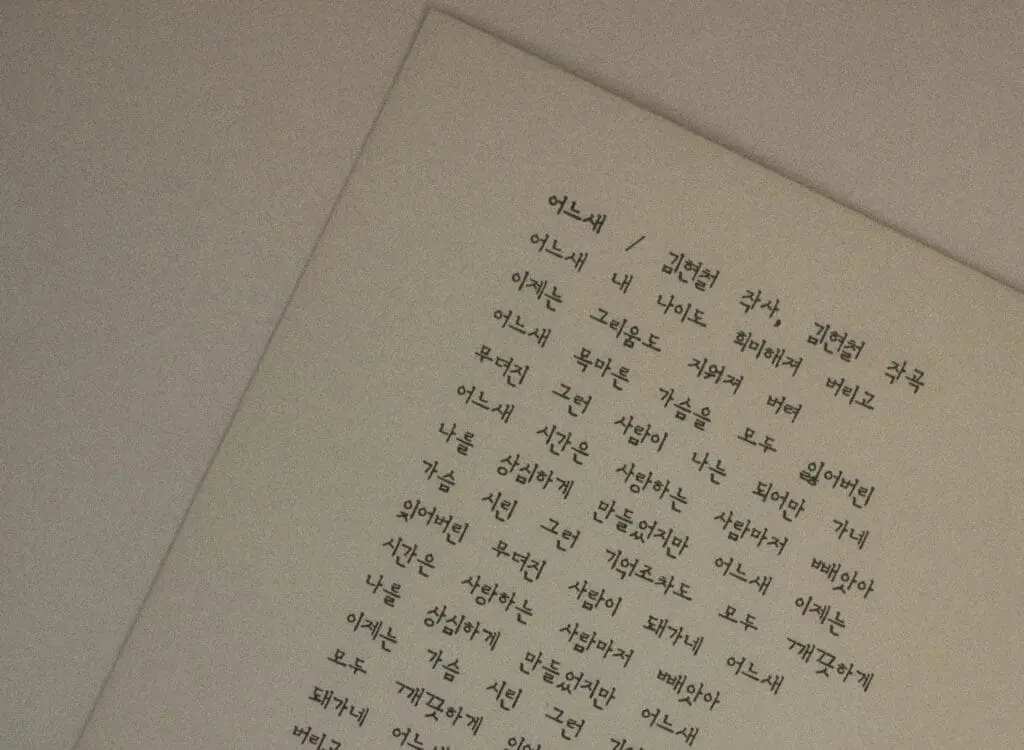 어느새 / 김현철 작사, 김현철 작곡
어느새 내 나이도 희미해져 버리고
이제는 그리움도 지워져 버려
어느새 목마른 가슴을 모두 잃어버린
무뎌진 그런 사람이 나는 되어만 가네
어느새 시간은 사랑하는 사람마저 빼앗아
나를 상심하게 만들었지만 어느새 이제는
가슴 시린 그런 기억조차도 모두 깨끗하게
잊어버린 무뎌진 사람이 돼가네 어느새
시간은 사랑하는 사람마저 빼앗아
나를 상심하게 만들었지만 어느새
이제는 가슴 시린 그런
모두 깨끗하게
돼가네
버리고